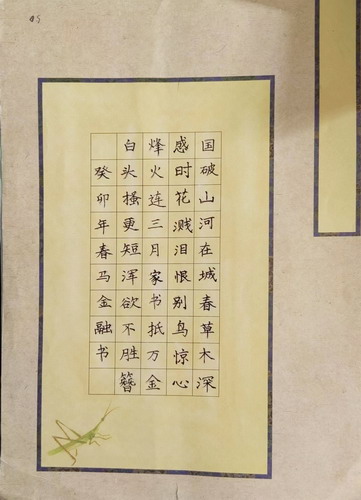 国破山河在城春草木深
感时花溅泪恨别鸟惊心
烽火连三月家书抵万金
白头搔更短浑欲不胜簪
癸卯年春马金融书
05